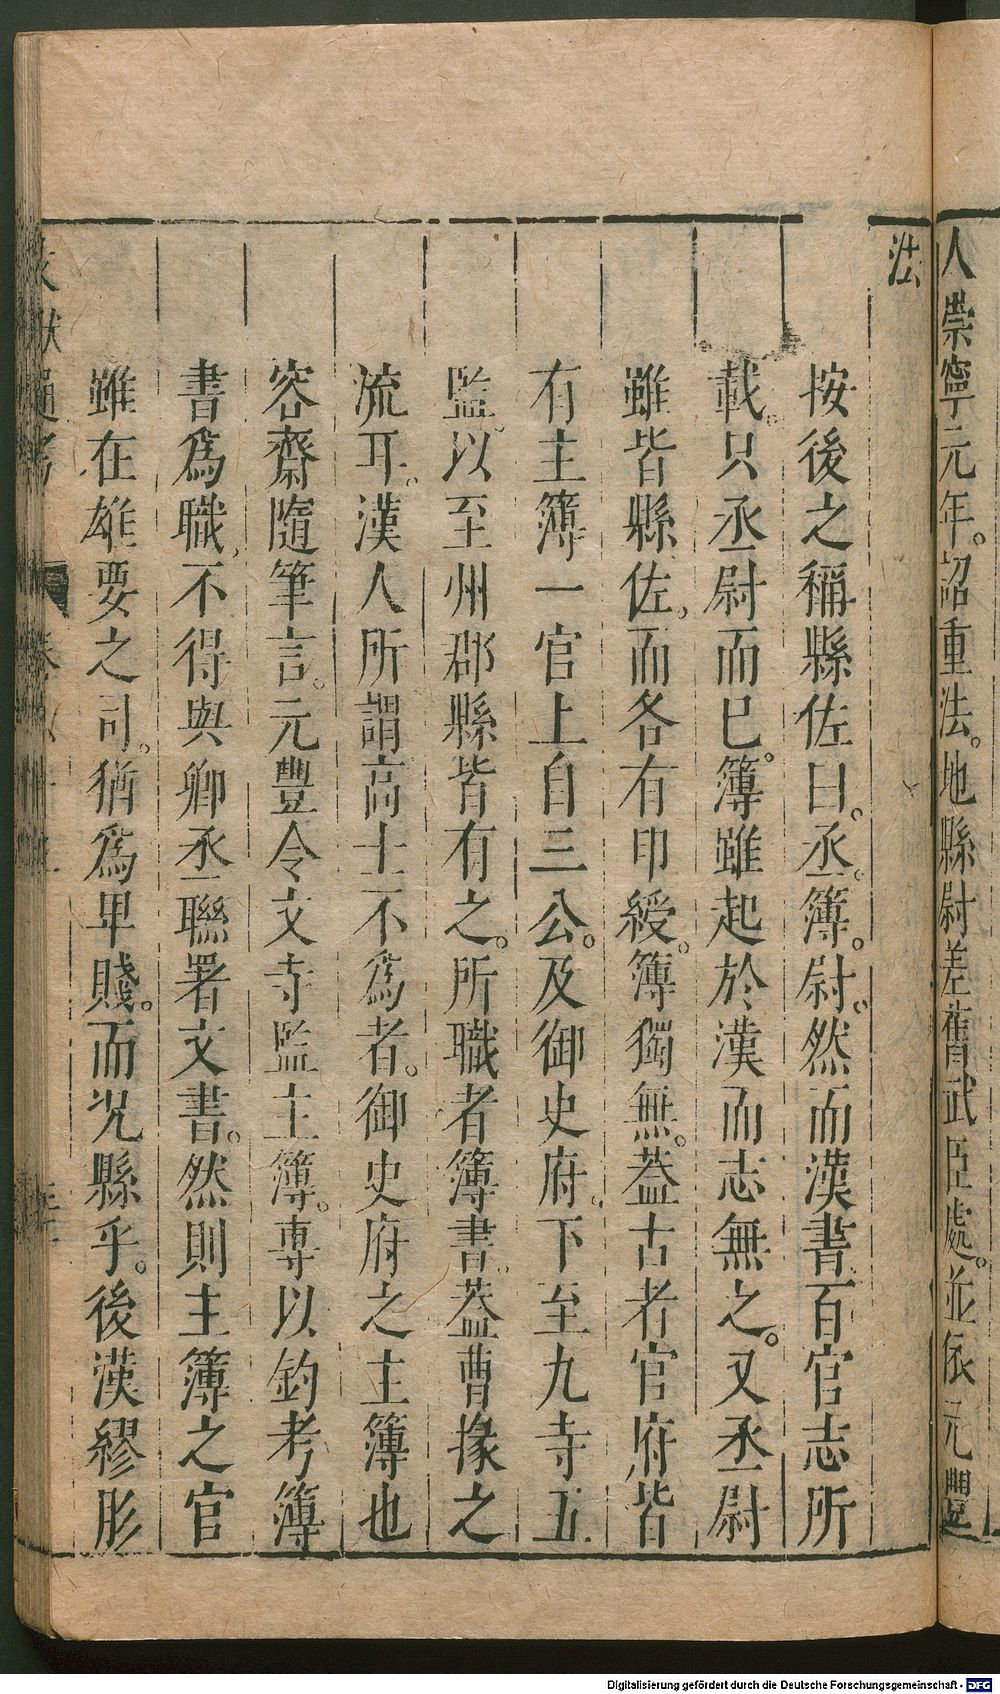 人崇寧元年。詔重法。地縣尉差舊武臣處。並依元豐
法
按後之稱縣佐曰。丞。簿。尉。然而漢書百官志所
載。只丞尉而已。簿雖起於漢而志無之。又丞尉
雖皆縣佐。而各有印綬。簿獨無。蓋古者官府皆
有主簿一官上自三公。及御史府。下至九寺五
監。以至州郡縣皆有之。所職者簿書。蓋曹掾之
流耳。漢人所謂高士不爲者。御史府之主簿也
容齋隨筆言。元豐令文寺監主簿。專以鈞考簿
書爲職。不得與卿丞聯署文書。然則主簿之官
雖在雄要之司。猶爲卑賤。而况縣乎。後漢繆肜
Digitalisierung gefördert durch die Deutsche Forschungsgemeinschaft - DFG